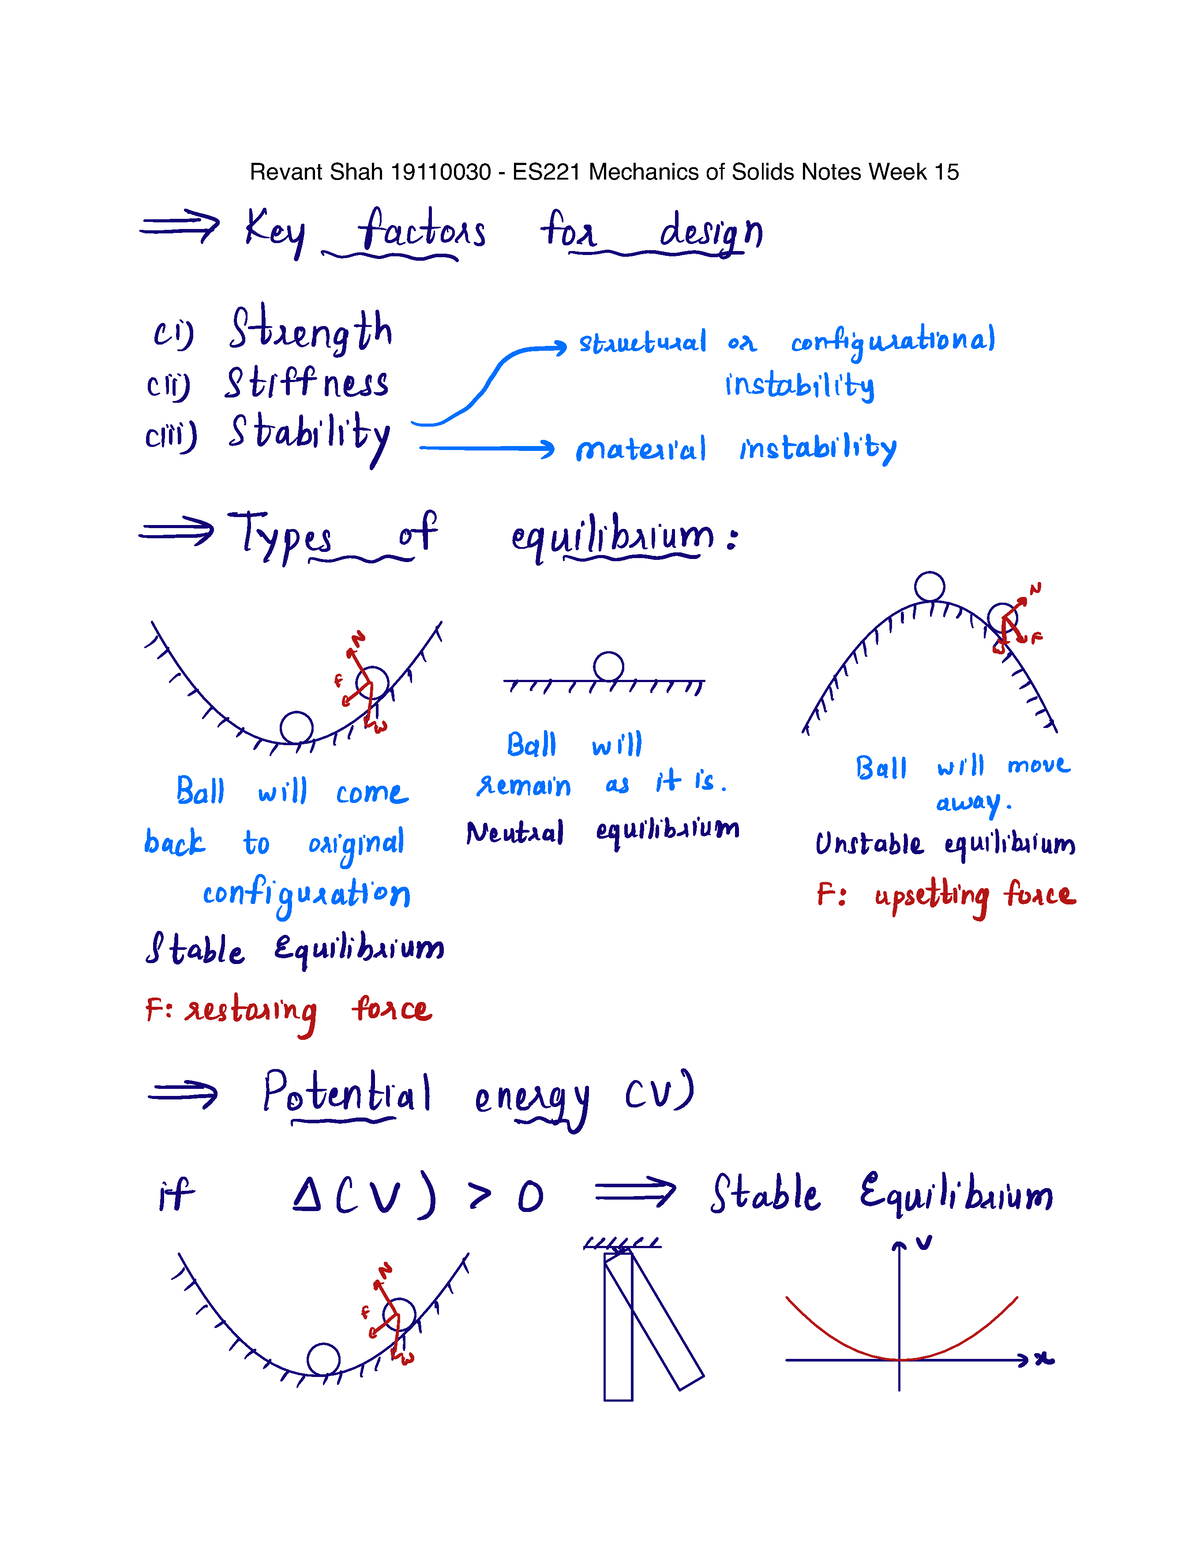 Revant Shah 19110030 - ES221 Mechanics of Solids Notes Week 15
⟹ Key factors for design
(i) Strength
(ii) Stiffness
(iii) Stability
structural or configurational
instability
material instability
⟹ Types of equilibrium:
N
F
W
N
F
W
Ball will come
back to original
configuration
Stable Equilibrium
F: restoring force
Ball will
remain as it is.
Neutral equilibrium
Ball will move
away.
Unstable equilibrium
F: upsetting force
⟹ Potential energy (V)
if Δ(V) > 0 ⟹ Stable Equilibrium
N
F
W
V
x